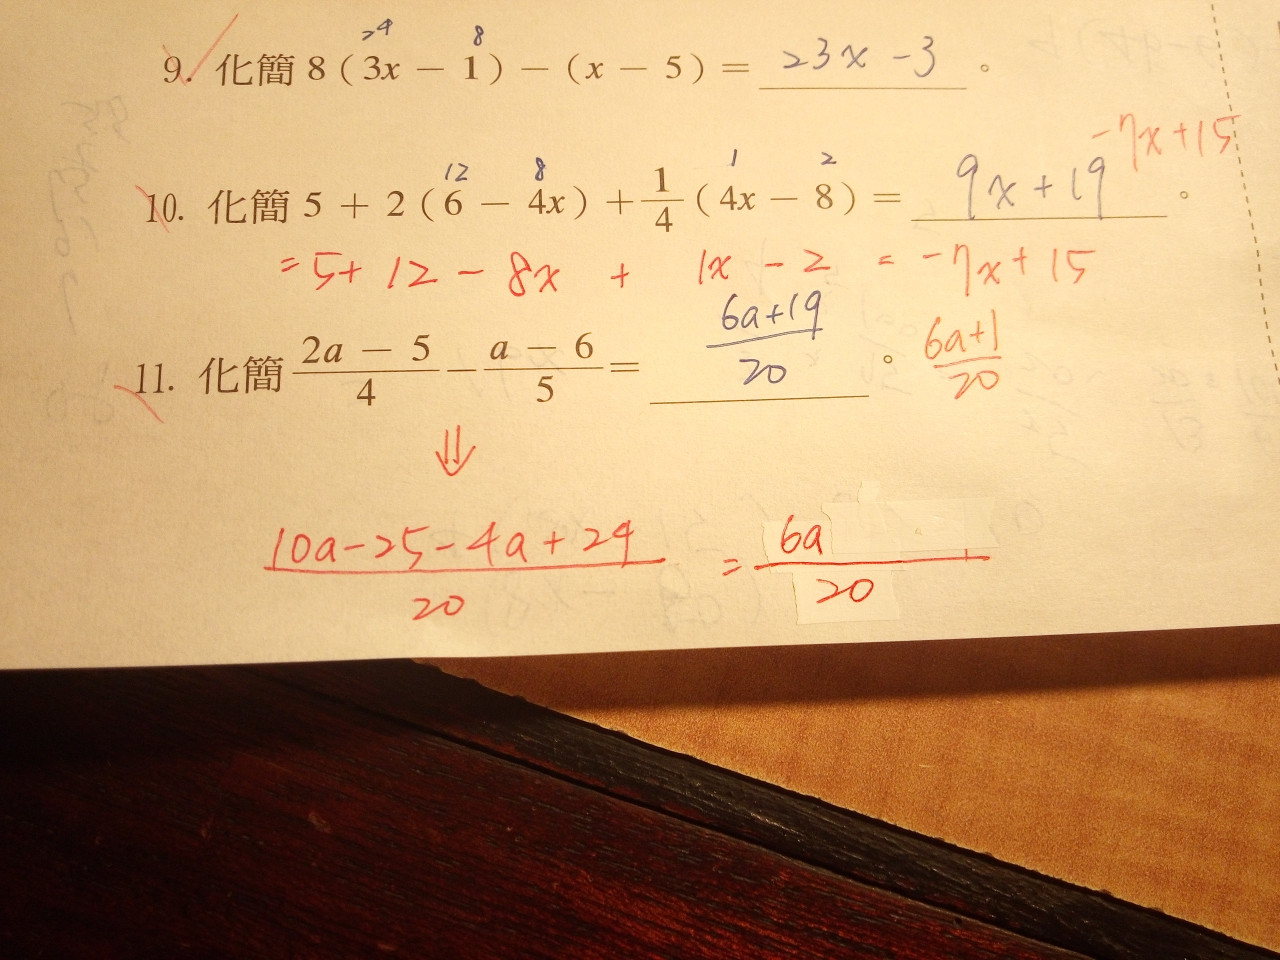 24 8
9. 化簡 8 ( 3x − 1 ) − ( x − 5 ) = 23x − 3 。
−7x + 15
12 8 1 2
10. 化簡 5 + 2 ( 6 − 4x ) + 1/4 ( 4x − 8 ) = 9x + 19 。
= 5 + 12 − 8x + 1x − 2 = −7x + 15
11. 化簡 (2a − 5)/4 − (a − 6)/5 = (6a+19)/20 。 (6a+1)/20
⇓
(10a − 25 − 4a + 24)/20 = 6a/20